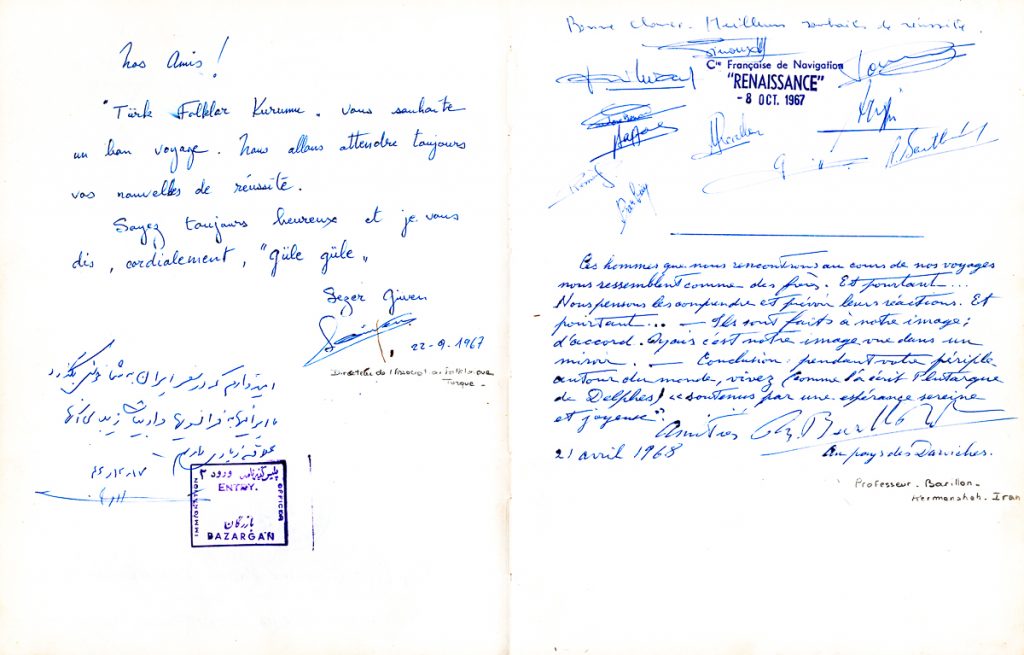 Nos Amis!
"Türk Folklor Kurumu. vous souhaite
un bon voyage. Nous allons attendre toujours
vos nouvelles de réussite.
Soyez toujours heureuse et je vous
dis, cordialement, "güle güle„
Sezer Güven
22-9-1967
Directeur de l'Associat. de folklore
Turque -
امیدواریم که در سفر ایران به شما خوش بگذرد
ما ایرانیها به فرانسویها و ادبیات
علاقه زیادی داریم
۴۶،۱۲،۱۷
ورود ۲
ENTRY.
IMMIGRATION
OFFICER
بازرگان
BAZARGAN
Bonne chance. Meilleurs souhaits de réussite.
Cie Française de Navigation
"RENAISSANCE"
- 8 OCT. 1967
Les hommes que nous rencontrons au cours de nos voyages
nous ressemblent comme des frères. Et pourtant....
Nous pensons les comprendre et prévoir leurs réactions. Et
pourtant.... — Ils sont faits à notre image;
d'accord. Mais c'est notre image vue dans un
miroir. — Conclusion: pendant votre périple
autour du monde, vivez (comme l'a écrit Plutarque
de Delphes) "soutenus par une espérance sereine
et joyeuse".
Amitiés
21 avril 1968
Au pays des Darviches.
Professeur. Barillon.
Kermanshah. Iran